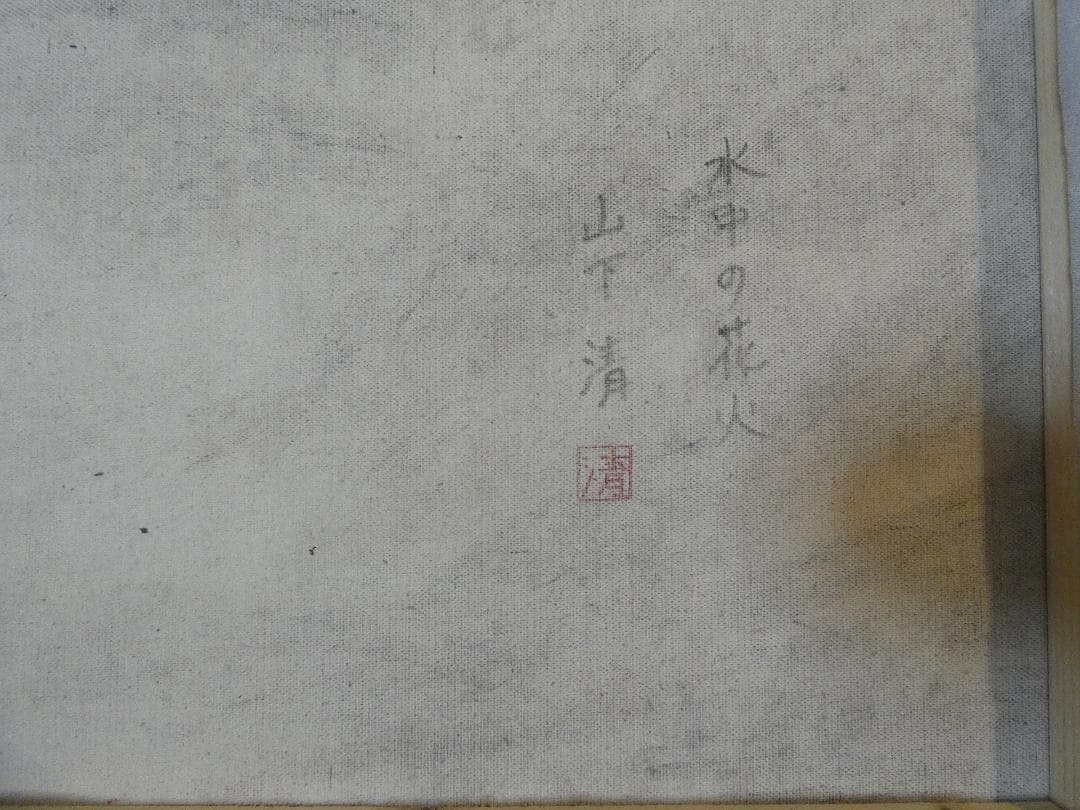 水中の花火
山下清
清